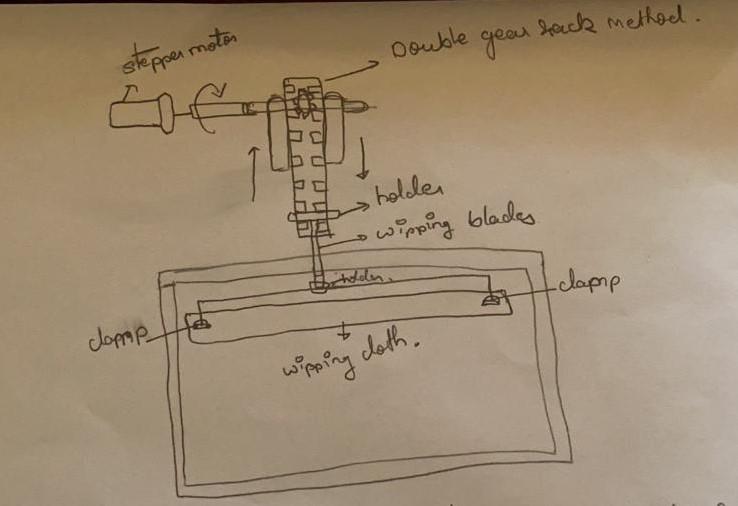 stepper motor
Double gear rack method.
holder
wipping blades
holder.
clamp
clamp
wipping cloth.